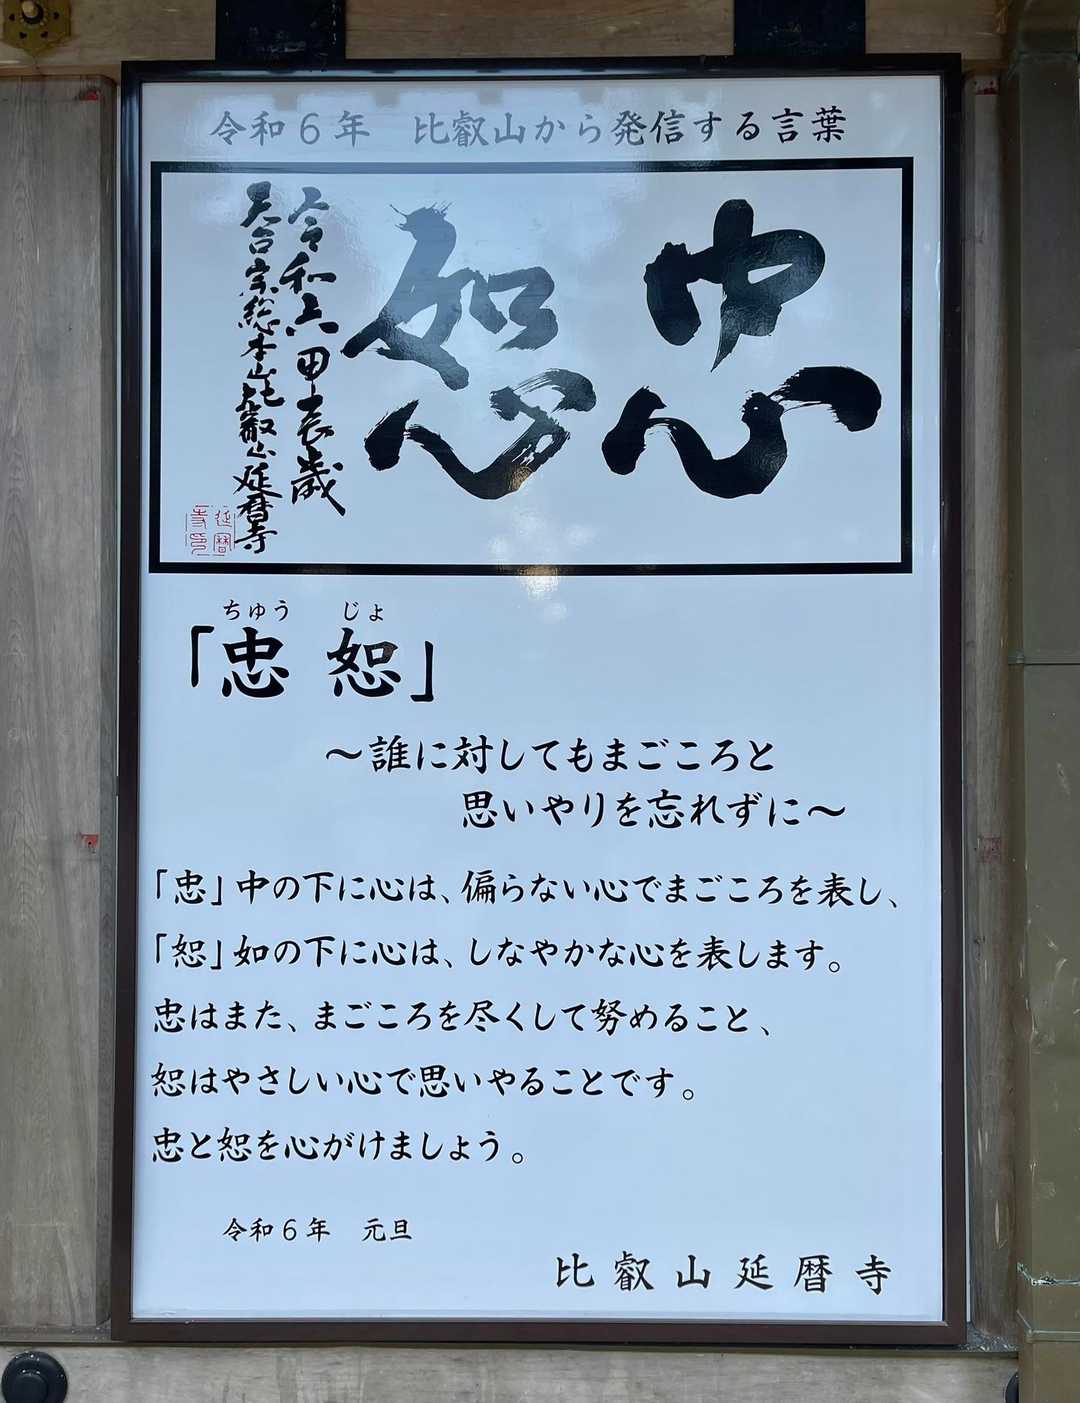 令和６年　比叡山から発信する言葉
忠恕
令和六甲辰歳
天台宗総本山比叡山延暦寺
延暦
寺印
ちゅう　じょ
「忠　恕」
～誰に対してもまごころと
思いやりを忘れずに～
「忠」中の下に心は、偏らない心でまごころを表し、
「恕」如の下に心は、しなやかな心を表します。
忠はまた、まごころを尽くして努めること、
恕はやさしい心で思いやることです。
忠と恕を心がけましょう。
令和６年　元旦
比叡山延暦寺